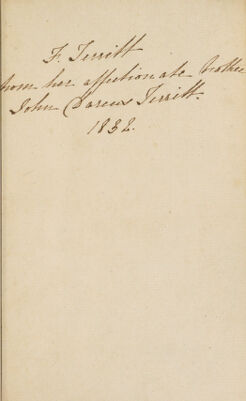 F. Territt
from her affectionate brother
John Dareux Territt.
1832.